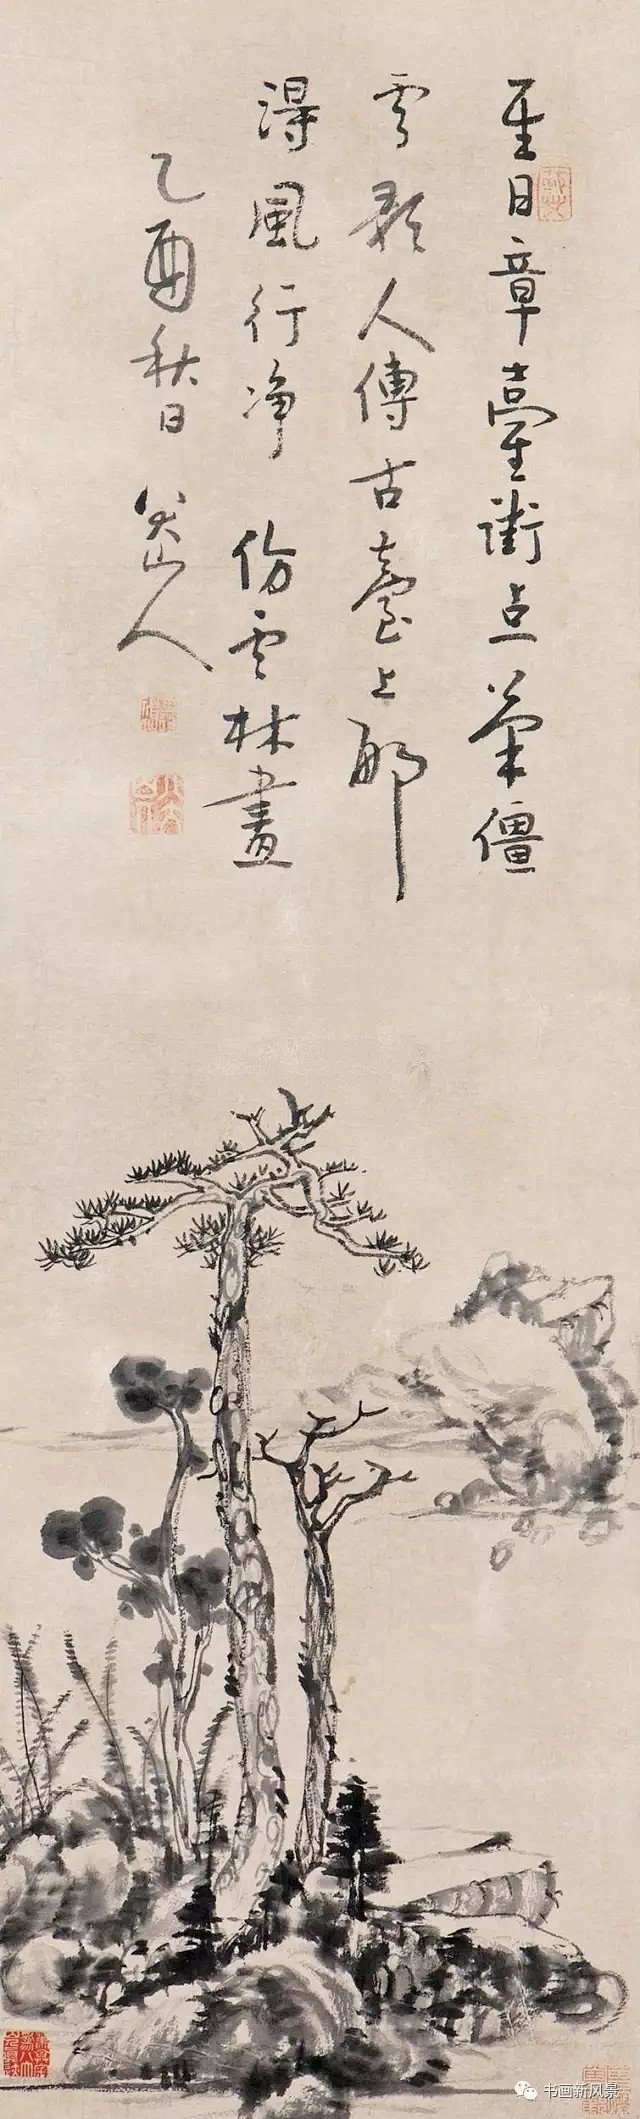 至日章臺街点筆僵
雲影人傳古臺上那
得風行净 仿雲林畫
乙酉秋日 八大山人
书画新风景